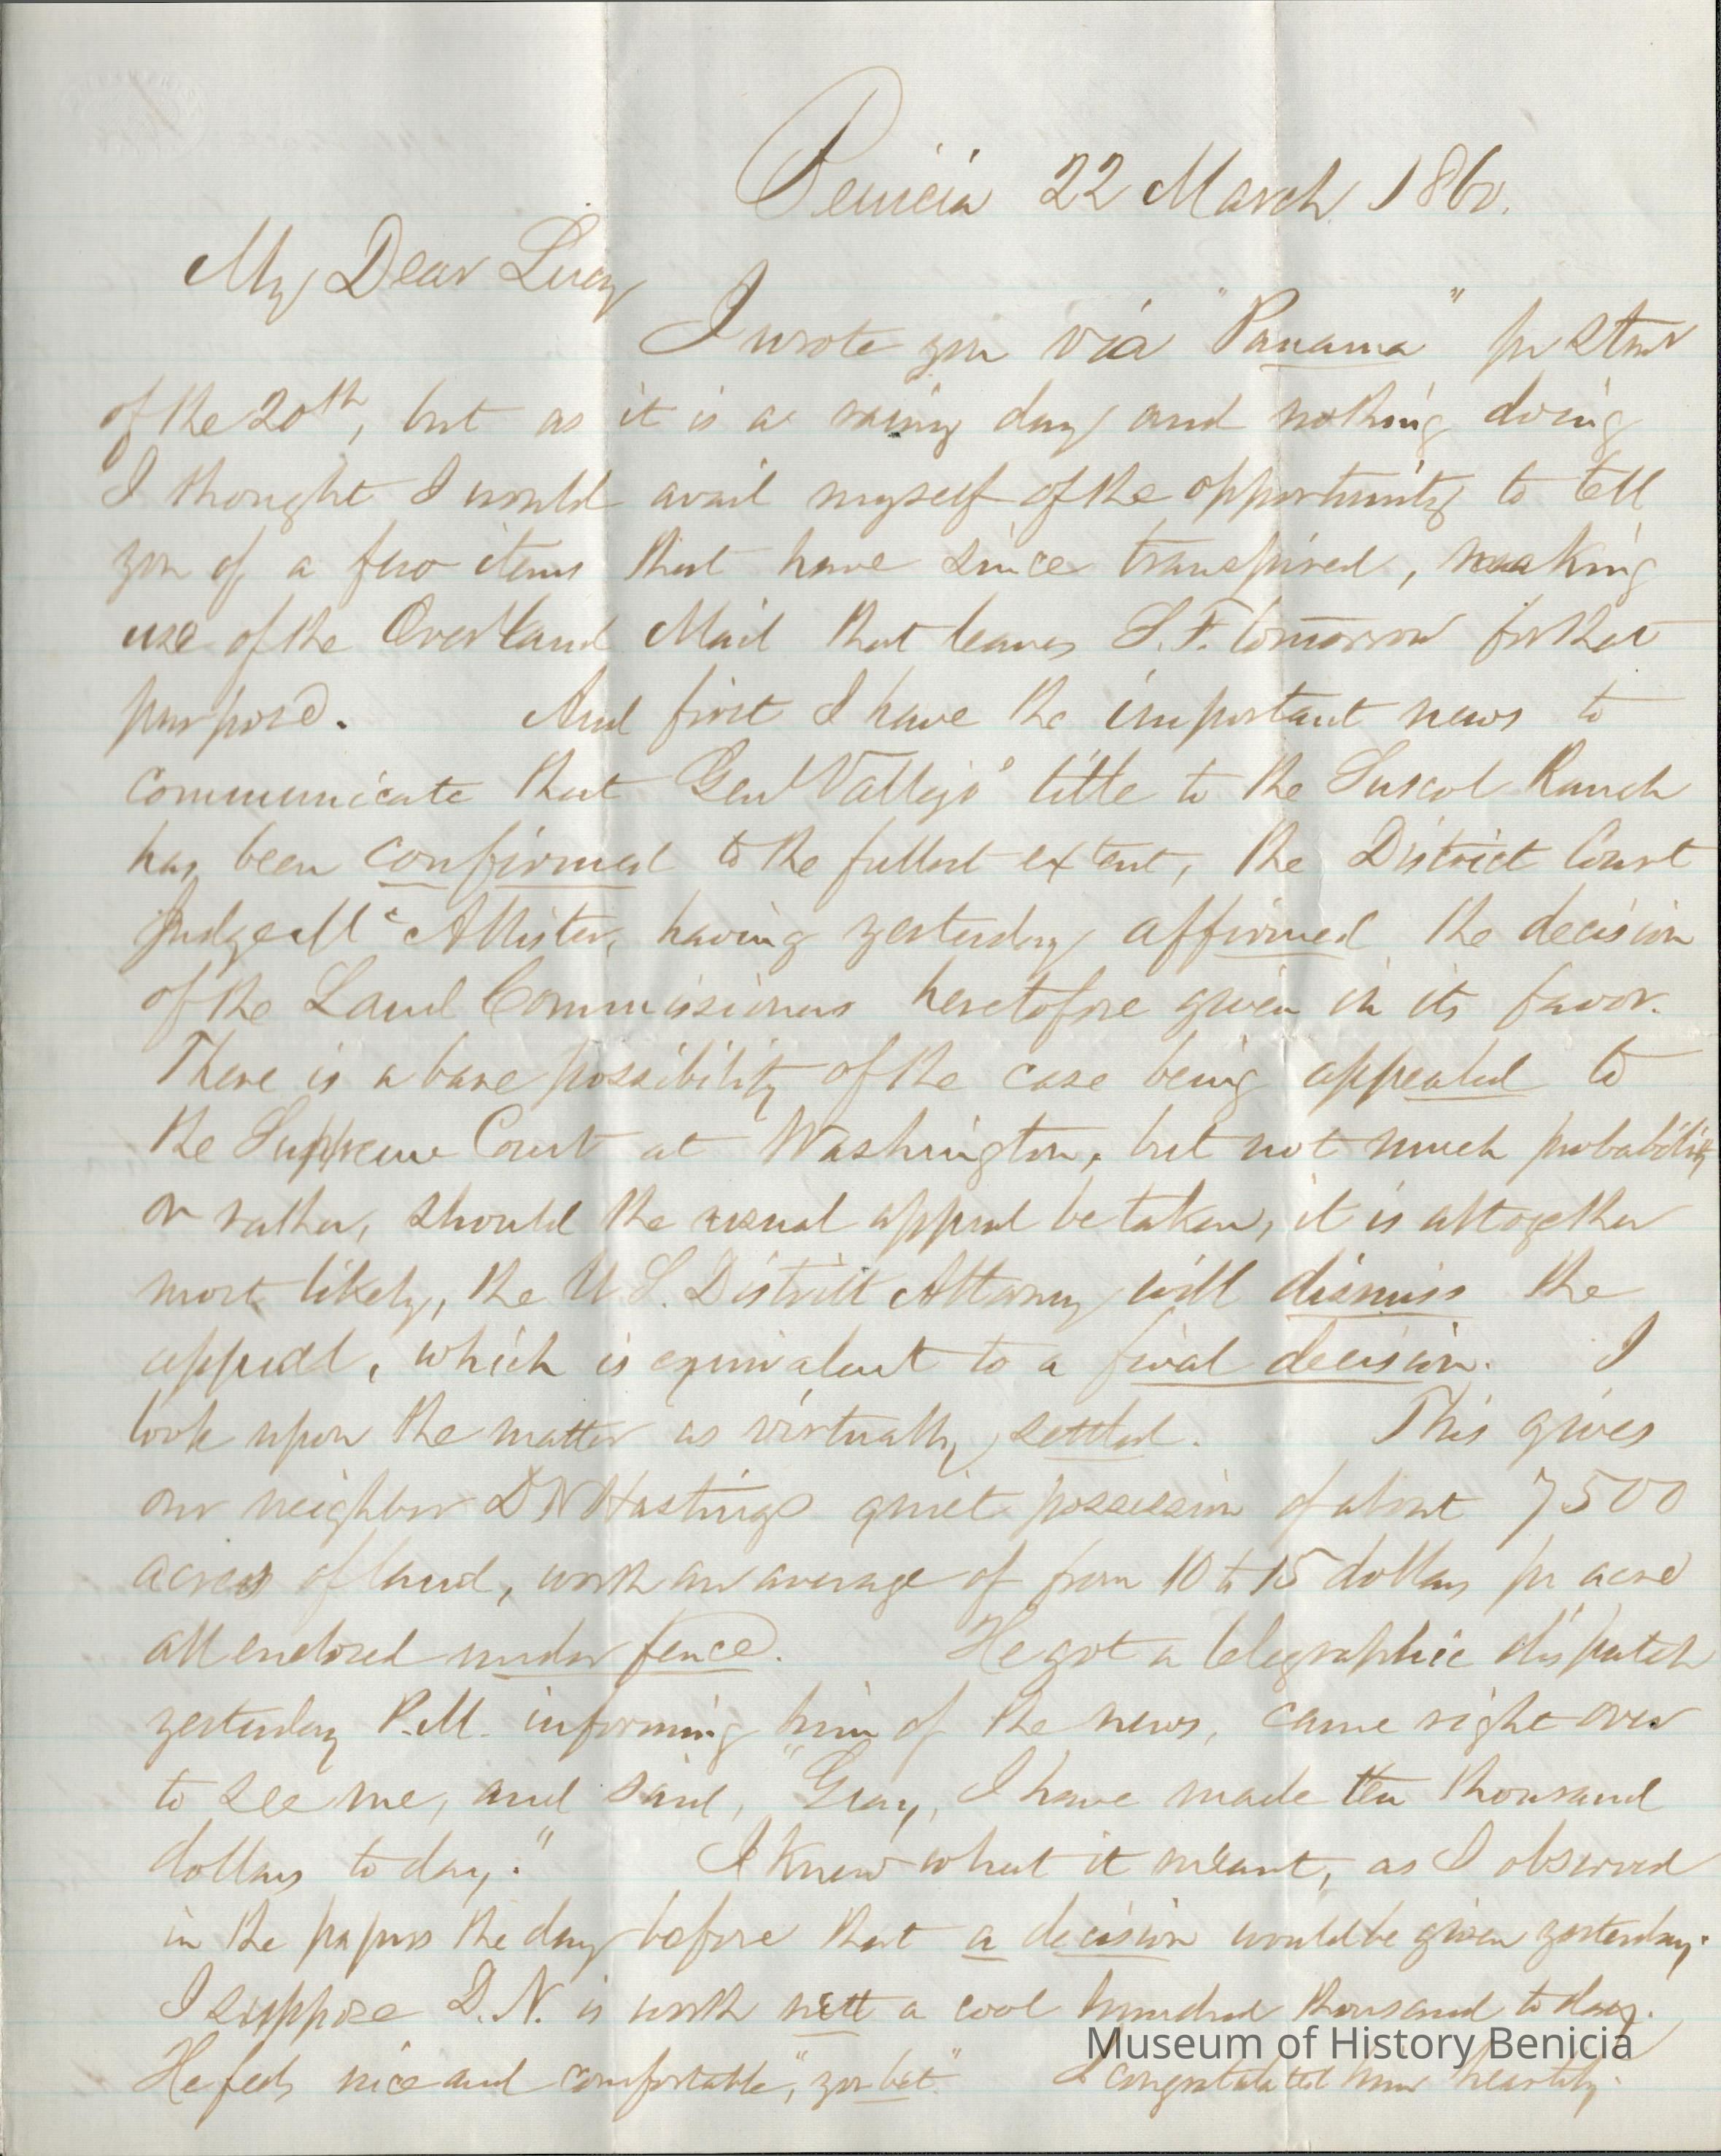 Benicia 22 March 1860.
My Dear Lucy
I wrote you via "Panama" pr Stmr
of the 20th, but as it is a rainy day and nothing doing
I thought I would avail myself of the opportunity to tell
you of a few items that have since transpired, making
use of the Overland Mail that leaves S.F. tomorrow for that
purpose. And first I have the important news to
communicate that Genl Vallejo's title to the Suscol Ranch
has been confirmed to the fullest extent, the District Court
Judge Mc Allister, having yesterday affirmed the decision
of the Land Commissioners heretofore given in its favor.
There is a bare possibility of the case being appealed to
the Supreme Court at Washington, but not much probability
or rather, should the usual appeal be taken, it is altogether
most likely, the U.S. District Attorney will dismiss the
appeal, which is equivalent to a final decision. I
look upon the matter as virtually settled. This gives
our neighbor D N Hastings quiet possession of about 7500
acres of land, worth an average of from 10 to 15 dollars pr acre
all enclosed under fence. He got a telegraphic dispatch
yesterday P.M. informing him of the news, came right over
to see me, and said, "Gray, I have made ten thousand
dollars to day." I knew what it meant, as I observed
in the papers the day before that a decision would be given yesterday.
I suppose D.N. is worth nett a cool hundred thousand to day.
He feels nice and comfortable, "you bet" I congratulated him heartily.
Museum of History Benicia